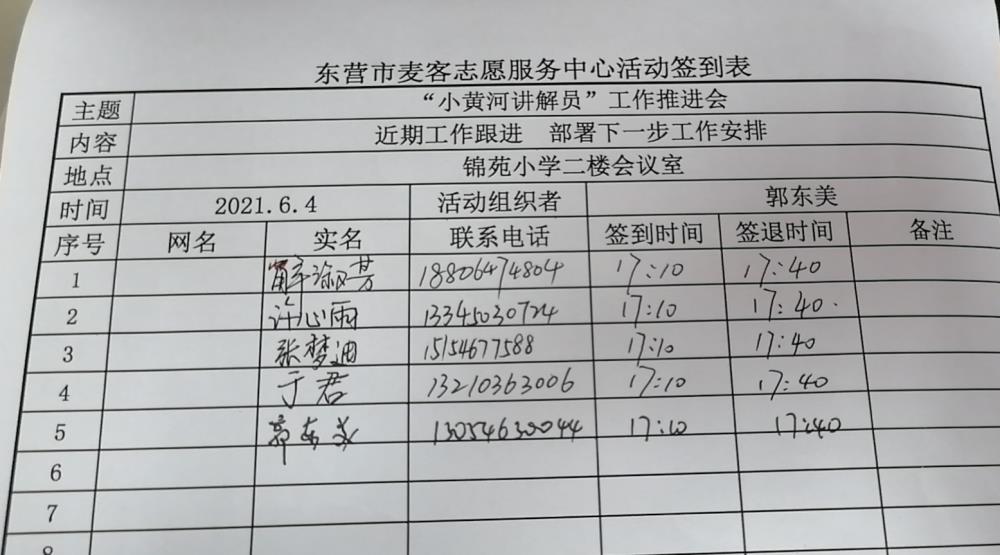 东营市麦客志愿服务中心活动签到表
主题 “小黄河讲解员”工作推进会
内容 近期工作跟进 部署下一步工作安排
地点 锦苑小学二楼会议室
时间 2021.6.4 活动组织者 郭东美
序号 网名 实名 联系电话 签到时间 签退时间 备注
1 18806474804 17:10 17:40
2 许心雨 13345030724 17:10 17:40
3 张梦迪 15154677588 17:10 17:40
4 于君 13210363006 17:10 17:40
5 郭东美 13054630044 17:10 17:40
6
7
8